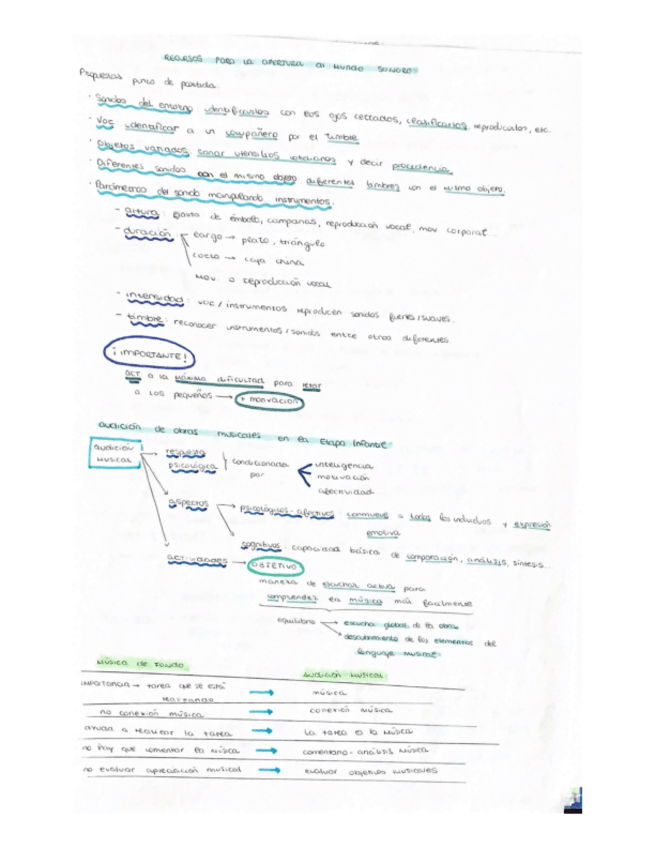 RECURSOS PARA LA APERTURA AL MUNDO SONORO
Propuestas punto de partida
· Sonidos del entorno identificarlos con los ojos cerrados, clasificarlos, reproducirlos, etc.
· Voz: identificar a un compañero por el timbre
· Objetos variados sonar utensilios cotidianos y decir procedencia.
· Diferentes sonidos con el mismo objeto diferentes timbres con el mismo objeto.
· Parámetros del sonido manipulando instrumentos:
- altura: flauta de émbolo, campanas, reproducción vocal, mov corporal...
- duración largo → plato, triángulo
corto → caja china
mov. o reproducción vocal
- intensidad: voz / instrumentos reproducen sonidos fuertes/suaves.
- timbre: reconocer instrumentos / sonids entre otros diferentes.
¡IMPORTANTE!
ACT a la máxima dificultad para retar
a los pequeños → + motivación
audición de obras musicales en la Etapa Infantil
audición musical
respuesta psicológica condicionada por inteligencia
motivación
afectividad
aspectos → psicológicos-afectivos: conmueve a todos los individuos y expresión
emotiva
cognitivos: capacidad básica de comparación, análisis, síntesis...
actividades → OBJETIVO
manera de escuchar activa para
comprender la música más fácilmente
equilibrio → escucha global de la obra
→ descubrimiento de los elementos del
lenguaje musical
MÚSICA DE FONDO AUDICIÓN MUSICAL
importancia → tarea que se está realizando → música
no conexión música → conexión música
ayuda a realizar la tarea → la tarea es la música
no hay que comentar la música → comentario-análisis música
no evaluar apreciación musical → evaluar objetivos musicales